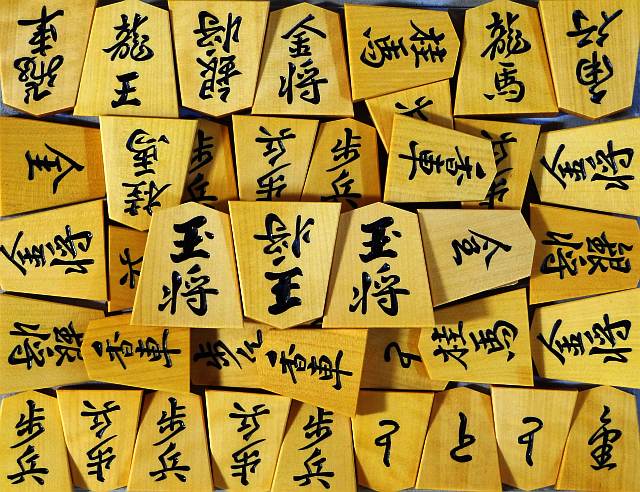 飛車
龍王
銀将
金将
桂馬
龍馬
角行
桂馬
歩兵
歩兵
歩兵
香車
歩兵
金将
金将
王将
王将
王将
銀将
銀将
香車
香車
と
桂馬
金将
歩兵
歩兵
歩兵
歩兵
歩兵
と
と
と